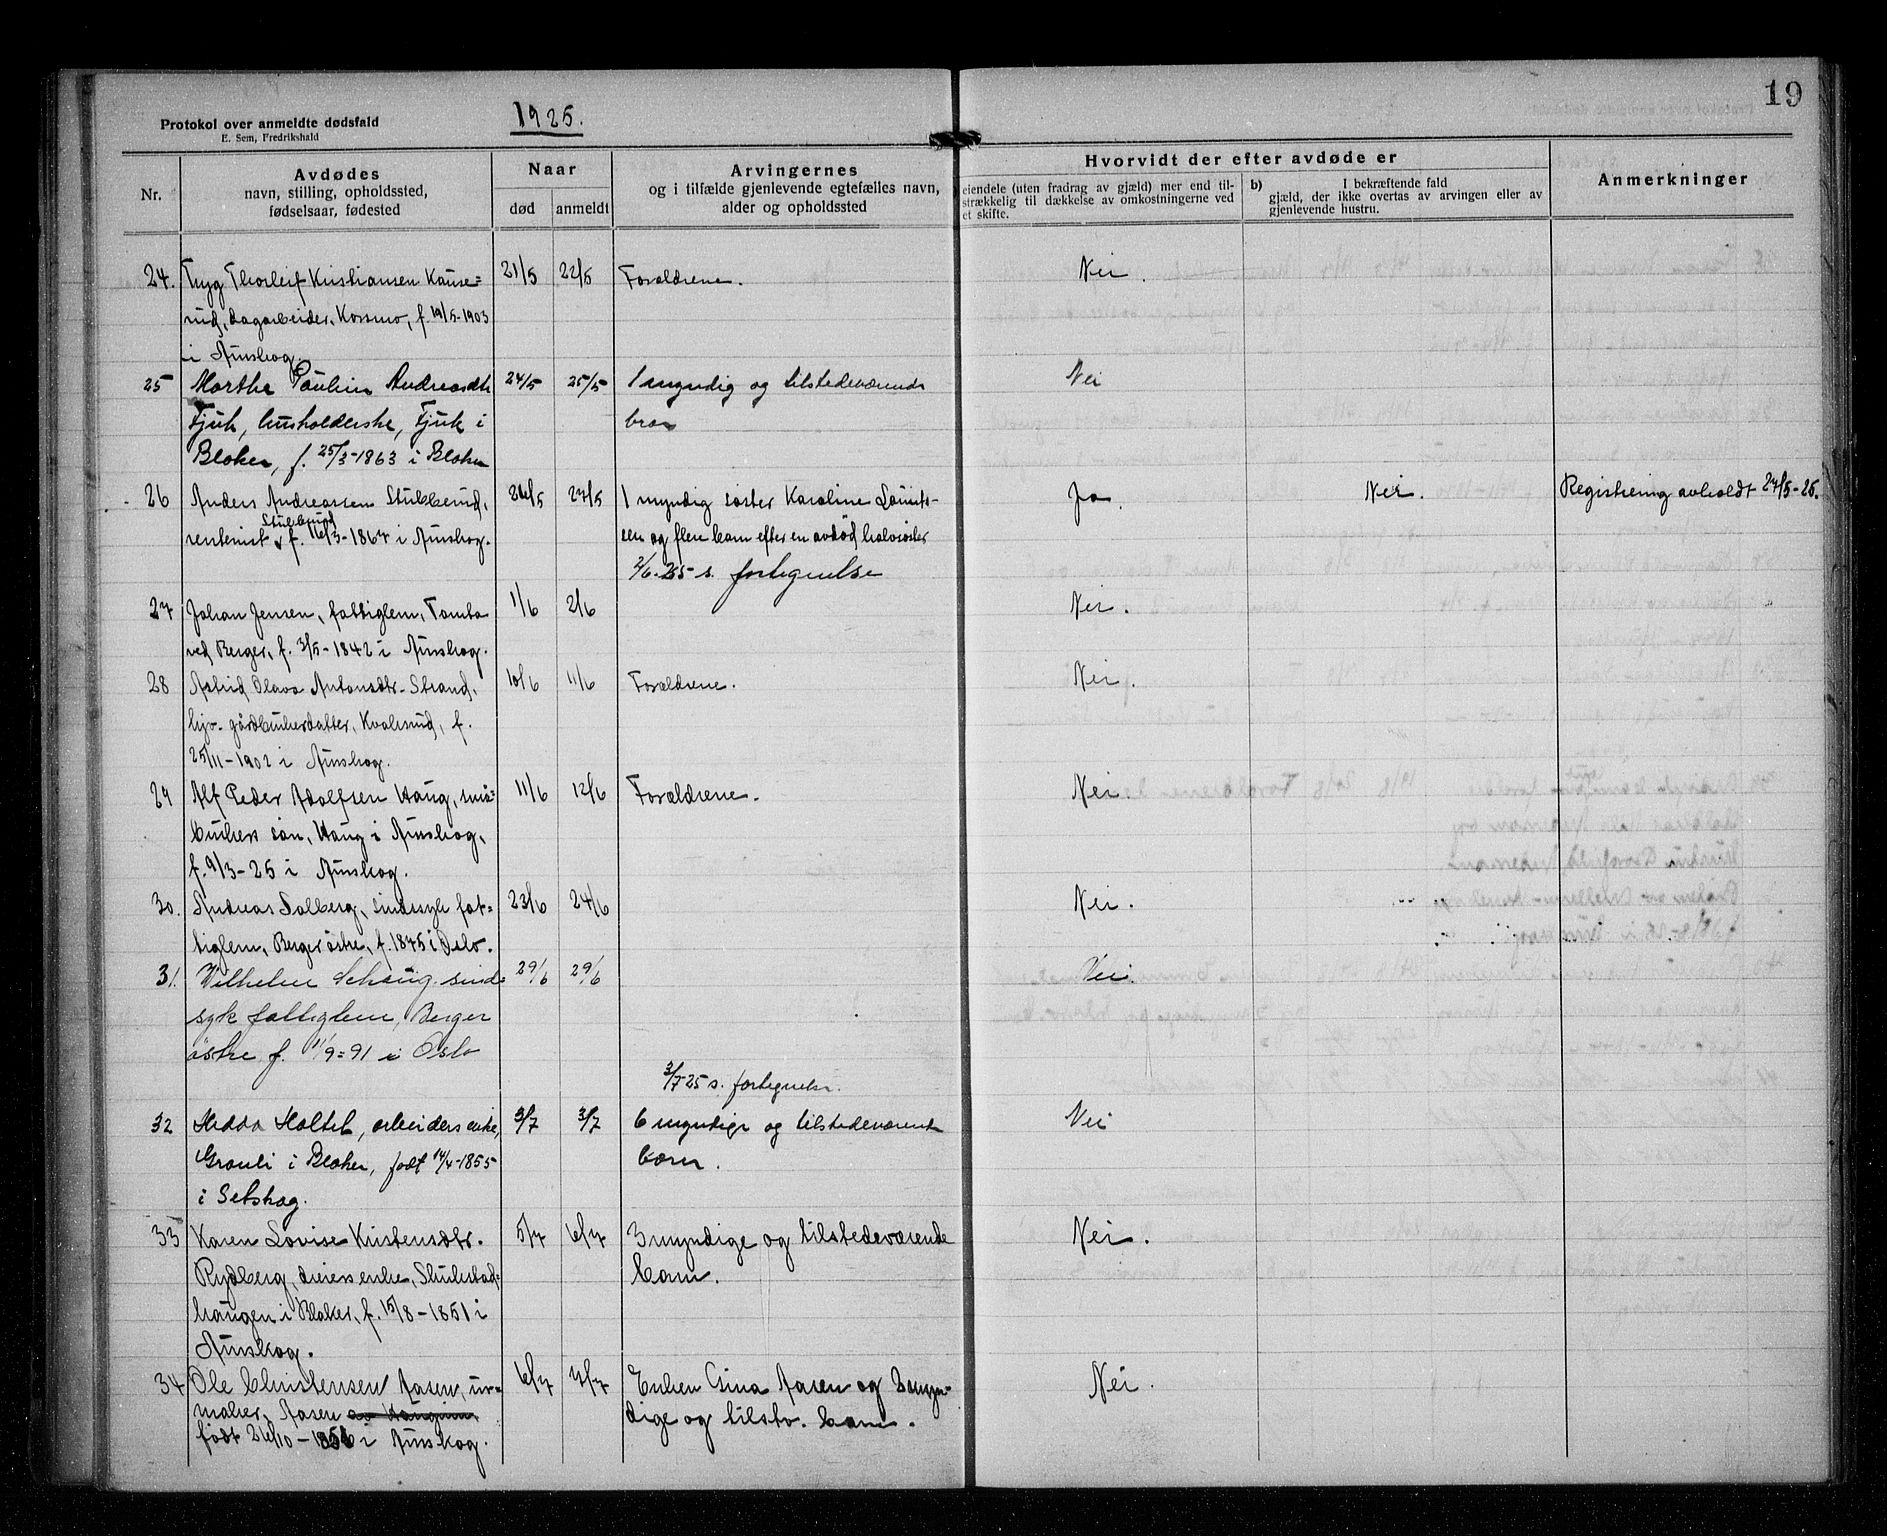 19
Protokol over anmeldte dødsfald
E. Sem, Fredrikshald
1925.
Nr.
Avdødes
navn, stilling, opholdssted,
fødselsaar, fødested
Naar
død
anmeldt
Arvingernes
og i tilfælde gjenlevende egtefælles navn,
alder og opholdssted
Hvorvidt der efter avdøde er
eiendele (uten fradrag av gjæld) mer end til-
strækkelig til dækkelse av omkostningerne ved
et skifte.
b) I bekræftende fald
gjæld, der ikke overtas av arvingen eller av
gjenlevende hustru.
Anmerkninger
24. Tryg Thorleif Kristiansen Kause= 21/5 22/5 Forældrene. Nei.
rud, dagarbeider, Korsmo, f. 19/5-1903
i Aurskog.
25 Marthe Paulin Andreasdtr 24/5 25/5 1 myndig og tilstedeværende Nei
Fjuk, husholderske, Fjuk i bror
Blaker, f. 25/3-1863 i Blaker
26 Anders Andreassen Stubberud, 26/5 27/5 1 myndig søster Karoline Laurits- Ja. Nei. Registrering avholdt 27/5-25.
Stubberud
rentenist f. 16/3-1867 i Aurskog. sen og flere barn efter en avdød halvsøster
2/6-25 s. fortegnelse
27 Johan Jensen, fattiglem, Tomta 1/6 2/6 Nei.
ved Berger, f. 3/5-1842 i Aurskog.
28 Astrid Olava Antonsdtr. Strand, 10/6 11/6 Forældrene. Nei.
hjv. gårdbrukerdatter, Kvalsrud, f.
25/11-1902 i Aurskog.
29 Alf Peder Adolfsen Haug, små= 11/6 12/6 Forældrene. Nei.
brukers søn, Haug i Aurskog,
f. 9/3-25 i Aurskog.
30. Andreas Solberg, sindssyk fat= 23/6 24/6 Nei.
tiglem, Berger østre, f. 1845 i Oslo.
31. Vilhelm Schaug sind= 29/6 29/6 Nei.
syk fattiglem, Berger
østre f. 11/9=91 i Oslo
3/7-25 s. fortegnelse.
32 Hedda Holtet, arbeiders enke, 3/7 3/7 6 myndige og tilstedeværende Nei
Grauli i Blaker, født 14/4-1855 børn.
i Setskog.
33 Karen Lovise Kristensdtr. 5/7 6/7 3 myndige og tilstedeværende Nei.
Rydberg, dreiers enke, Skulstad- barn.
haugen i Blaker, f. 15/8-1851 i
Aurskog.
34 Ole Christensen Aasen, ur= 6/7 7/7 Enken Gina Aasen og myn- Nei.
maker, Aasen dige og tilstv. barn.
født 26/10-1856 i Aurskog.